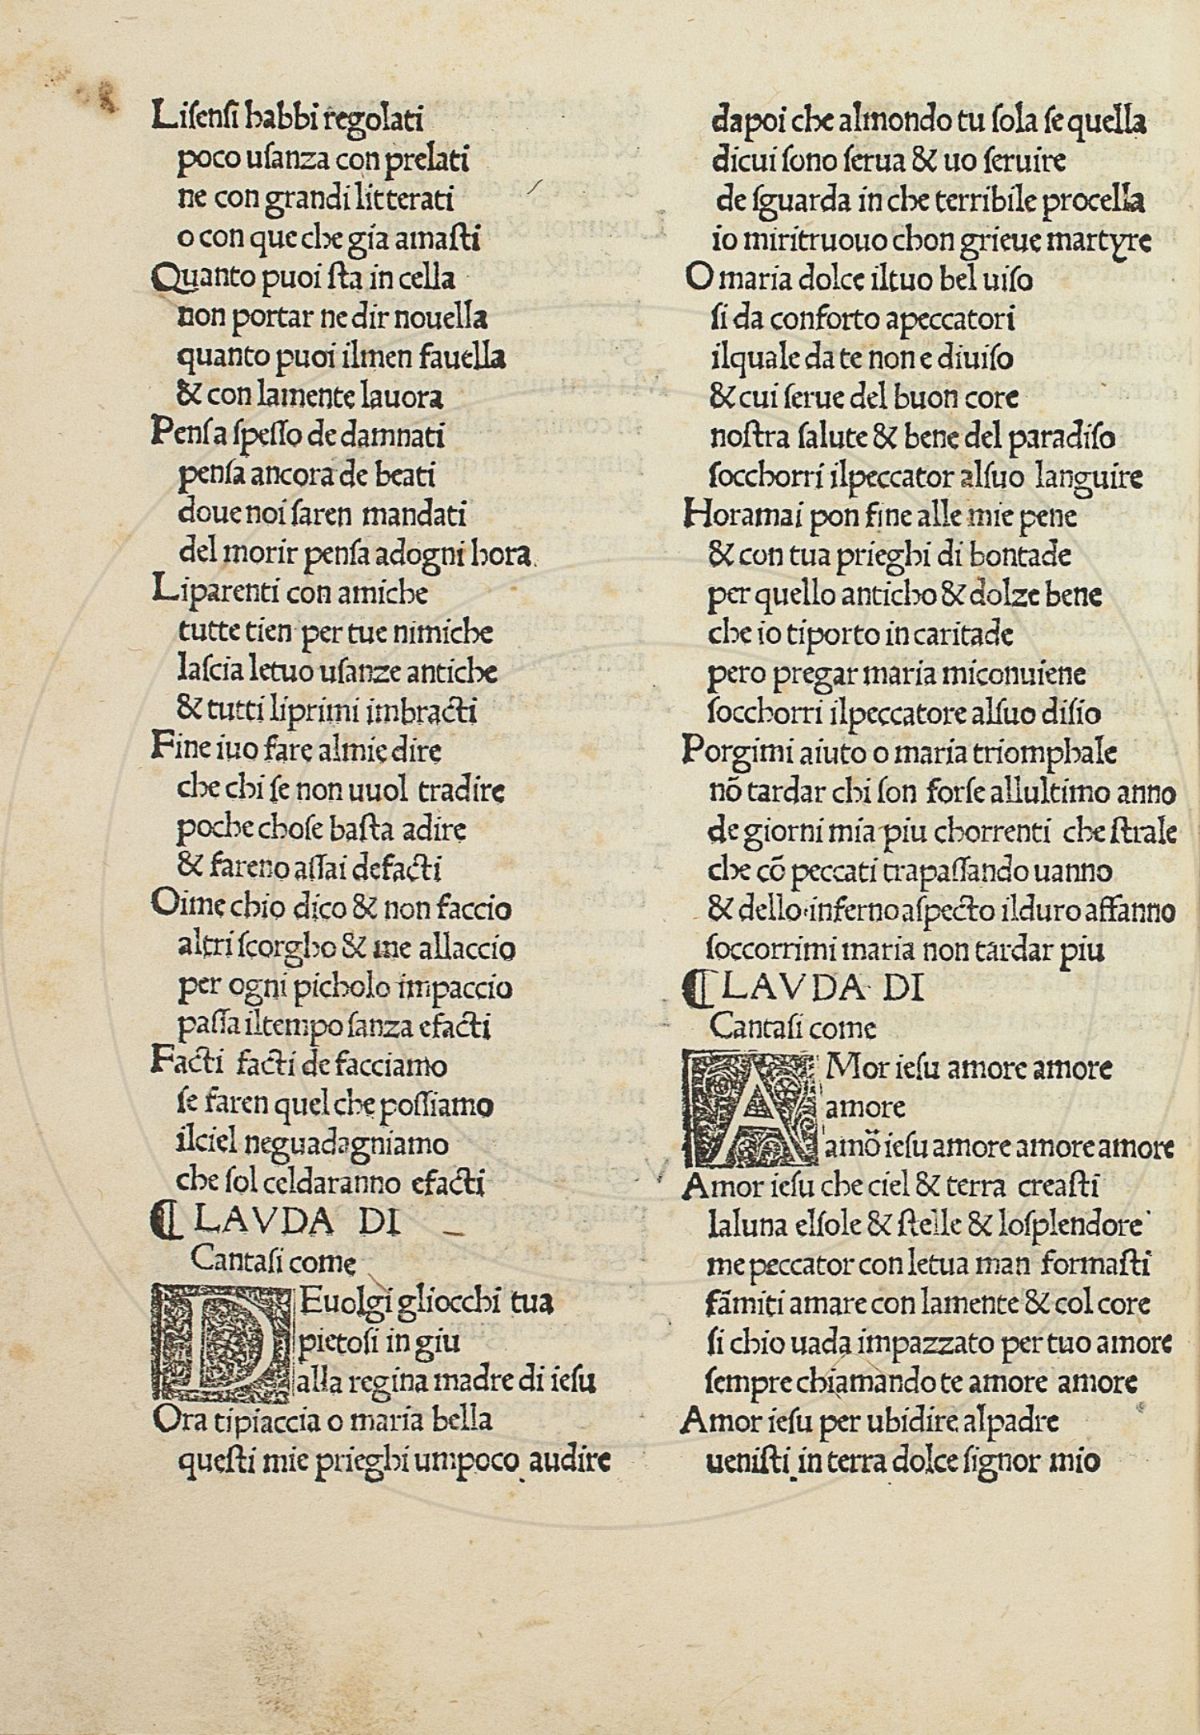 Liſenſi habbi regolati
poco uſanza con prelati
ne con grandi litterati
o con que che gia amaſti
Quanto puoi ſta in cella
non portar ne dir nouella
quanto puoi ilmen fauella
& con lamente lauora
Penſa ſpeſſo de damnati
penſa ancora de beati
doue noi ſaren mandati
del morir penſa adogni hora
Liparenti con amiche
tutte tien per tue nimiche
laſcia letuo uſanze antiche
& tutti liprimi imbracti
Fine iuo fare almie dire
che chi ſe non uuol tradire
poche choſe baſta adire
& fareno aſſai defacti
Oime chio dico & non faccio
altri ſcorgho & me allaccio
per ogni picholo impaccio
paſſa iltempo ſanza efacti
Facti facti de facciamo
ſe faren quel che poſſiamo
ilciel neguadagniamo
che ſol celdaranno efacti
¶ LAVDA DI
Cantaſi come
DEuolgi gliocchi tua
pietoſi in giu
alla regina madre di ieſu
Ora tipiaccia o maria bella
queſti mie prieghi umpoco audire
dapoi che almondo tu ſola ſe quella
dicui ſono ſerua & uo ſeruire
de ſguarda in che terribile procella
io miritruouo chon grieue martyre
O maria dolce iltuo bel uiſo
ſi da conforto apeccatori
ilquale da te non e diuiſo
& cui ſerue del buon core
noſtra ſalute & bene del paradiſo
ſocchorri ilpeccator alſuo languire
Horamai pon fine alle mie pene
& con tua prieghi di bontade
per quello anticho & dolze bene
che io tiporto in caritade
pero pregar maria miconuiene
ſocchorri ilpeccatore alſuo diſio
Porgimi aiuto o maria triomphale
nō tardar chi ſon forſe allultimo anno
de giorni mia piu chorrenti che ſtrale
che cō peccati trapaſſando uanno
& dello inferno aſpecto ilduro affanno
ſoccorrimi maria non tardar piu
¶ LAVDA DI
Cantaſi come
AMor ieſu amore amore
amore
amō ieſu amore amore amore
Amor ieſu che ciel & terra creaſti
laluna elſole & ſtelle & loſplendore
me peccator con letua man formaſti
fāmiti amare con lamente & col core
ſi chio uada impazzato per tuo amore
ſempre chiamando te amore amore
Amor ieſu per ubidire alpadre
ueniſti in terra dolce ſignor mio